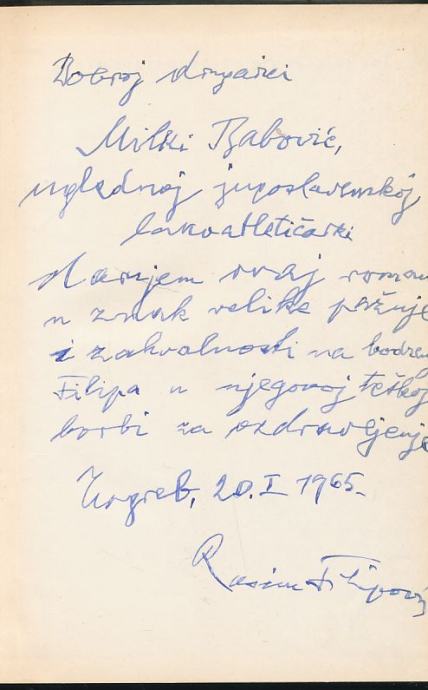 Dobroj drugarici
Milki Babović,
uglednoj jugoslavenskoj
lakoatletičarki
darujem ovaj roman
u znak velike pažnje
i zahvalnosti na bodren
Filipa u njegovoj teškoj
borbi za ozdravljenje
Zagreb, 20.I 1965.
Rasim Filipović